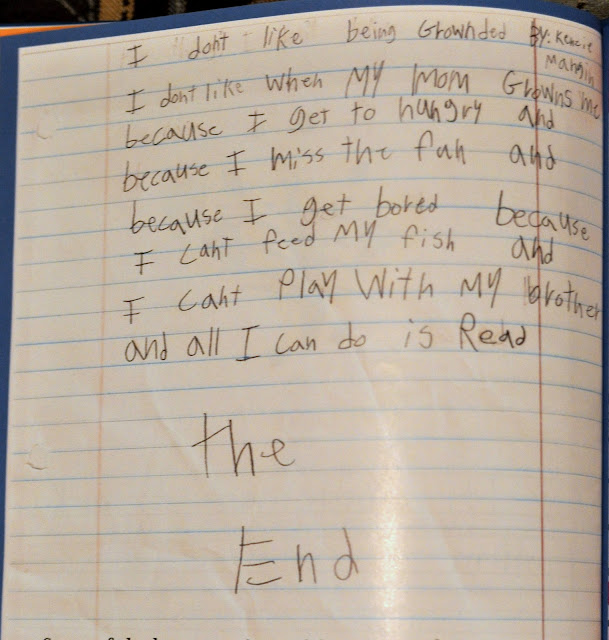 I don't like being Grownded By: Kenzie
Margin
I dont like when MY mom Growns me
because I get to hungry and
because I miss the fun and
because I get bored because
I cant feed MY fish and
I cant Play With MY brother
and all I can do is Read
the
End